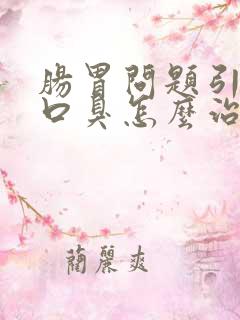 腸胃問題引
口臭怎麼治
蘭麗爽